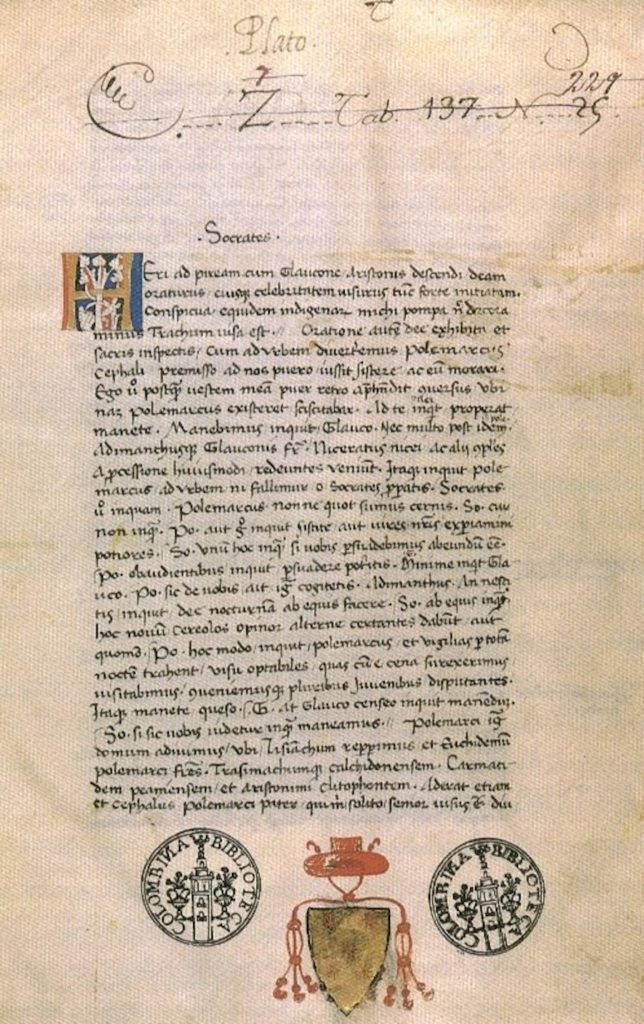 Plato.
7
Z Tab. 137 N. 25
229
.Socrates.
HEri ad piream cum Glaucone Aristonis descendi deam
oraturus / eiusq celebritatem uisurus tuc forte initiatam.
Conspicua equidem indigenar michi pompa n decora
minus Trachum uisa est .// Oratione aute dee exhibita et
sacris inspectis / Cum ad Vrbem diuertemus Polemarcus
Cephali premisso ad nos puero iussit sistere ac eu morari.
Ego u postq uestem mea puer retro aphendit auersus Vbi
nam Polemarcus existeret sciscitabar. Ad te inqt properat
manete. Manebimus inquit Glauco. Nec multo post idem
Adimanthusq Glauconis fr. Niceratus nicei ac alii
A pcessione huiusmodi redeuntes Veniut. Itaq inquit pole
marcus ad Vrbem ni fallimur o Socrates ppatis. Socrates
u inquam. Polemarcus non ne quot sumus cernis. So. cur
non inq. Po. aut g inquit sistite aut uires nras expiamini
potiores. So. Vnu hoc inq si uobis psuadebimus abeundu ee.
Po. obaudientibus inquit psuadere potitis. Minime inqt Gla
uco. Po. sic de uobis ait ig cogitetis. Adimanthus. An nesci
tis / inquit / dee nocturna ab equis facere. So. ab equis inqt.
hoc nouu Cereolos opinor alterne certantes dabut / aut
quomo. Po. hoc modo / inquit / polemarcus / et Vigilias p tota
nocte trahent / Visu optabiles / quas cu e cena surexerimus
uisitabimus / queniemusq pluribus Iuuenibus disputantes.
Itaq manete queso. G. at Glauco censeo inquit manedu.
So. si sic uobis uidetur inq maneamus.// Polemarci ig
domum adiuimus / Vbi / Lisiachum repperimus et Euthidemu
polemarci fres. Trasimachumq calchidonensem. Carmati
dem peamensem / et Aristonimi Clitophontem. Aderat etiam
et Cephalus Polemarci pater
COLOMBINA BIBLIOTECA
COLOMBINA BIBLIOTECA